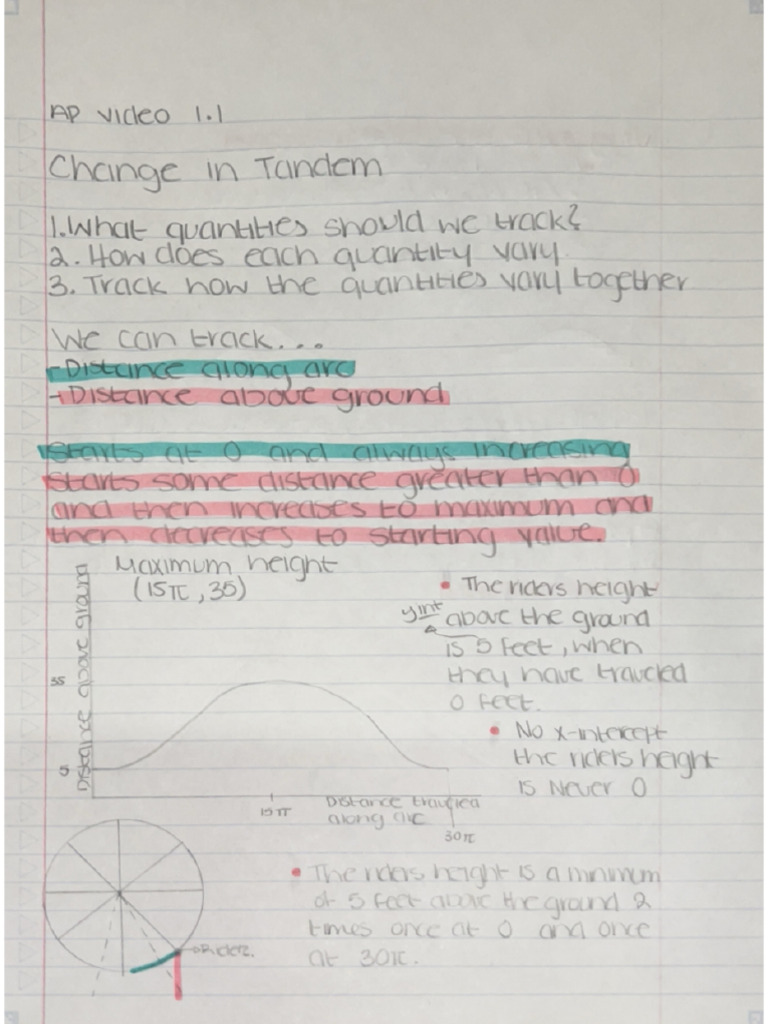 AP video 1.1
Change in Tandem
1. What quantities should we track?
2. How does each quantity vary
3. Track how the quantities vary together
We can track...
- Distance along arc
- Distance above ground
starts at 0 and always increasing
starts some distance greater than 0
and then increases to maximum and
then decreases to starting value.
Maximum height
(15π, 35)
Distance above ground
35
5
15π
Distance traveled
along arc
30π
• The riders height
yint above the ground
is 5 feet, when
they have traveled
0 feet.
• No x-intercept
the riders height
is Never 0
Rider
• The riders height is a minimum
of 5 feet above the ground 2
times once at 0 and once
at 30π.